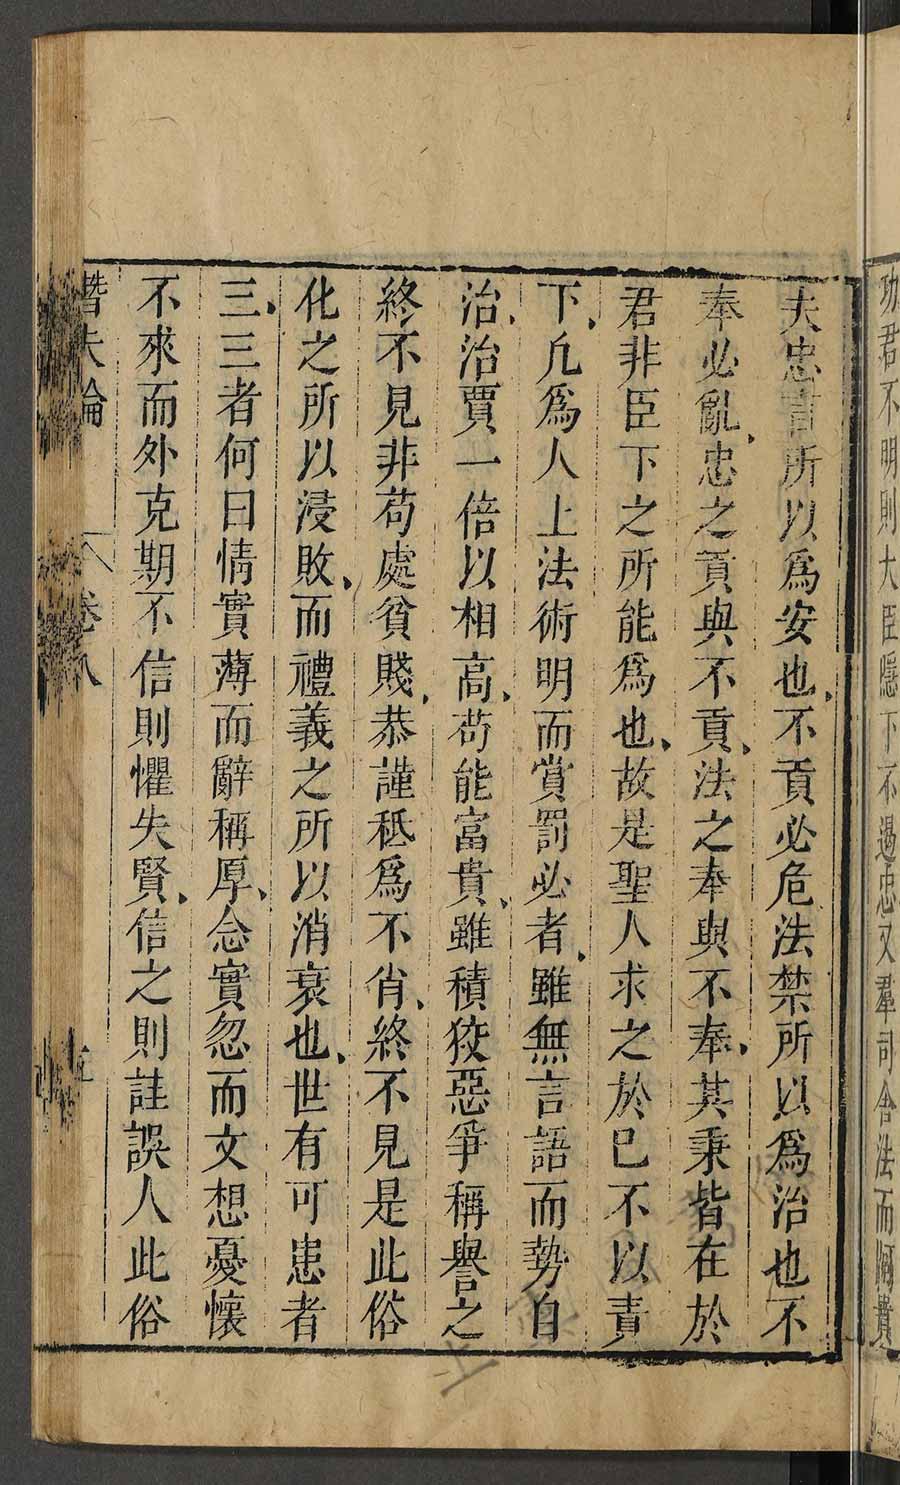 功君不明則大臣隱下不過忠又羣司舍法而阿貴
夫忠言所以爲安也不貢必危法禁所以爲治也不
奉必亂忠之貢與不貢法之奉與不奉其秉皆在於
君非臣下之所能爲也故是聖人求之於巳不以責
下凡爲人上法術明而賞罰必者雖無言語而勢自
治治賈一倍以相高苟能富貴雖積狡惡爭稱譽之
終不見非苟處貧賤恭謹秪爲不肖終不見是此俗
化之所以浸敗而禮義之所以消衰也世有可患者
三三者何曰情實薄而辭稱厚念實忽而文想憂懷
不來而外克期不信則懼失賢信之則詿誤人此俗
潛夫論 卷八 五